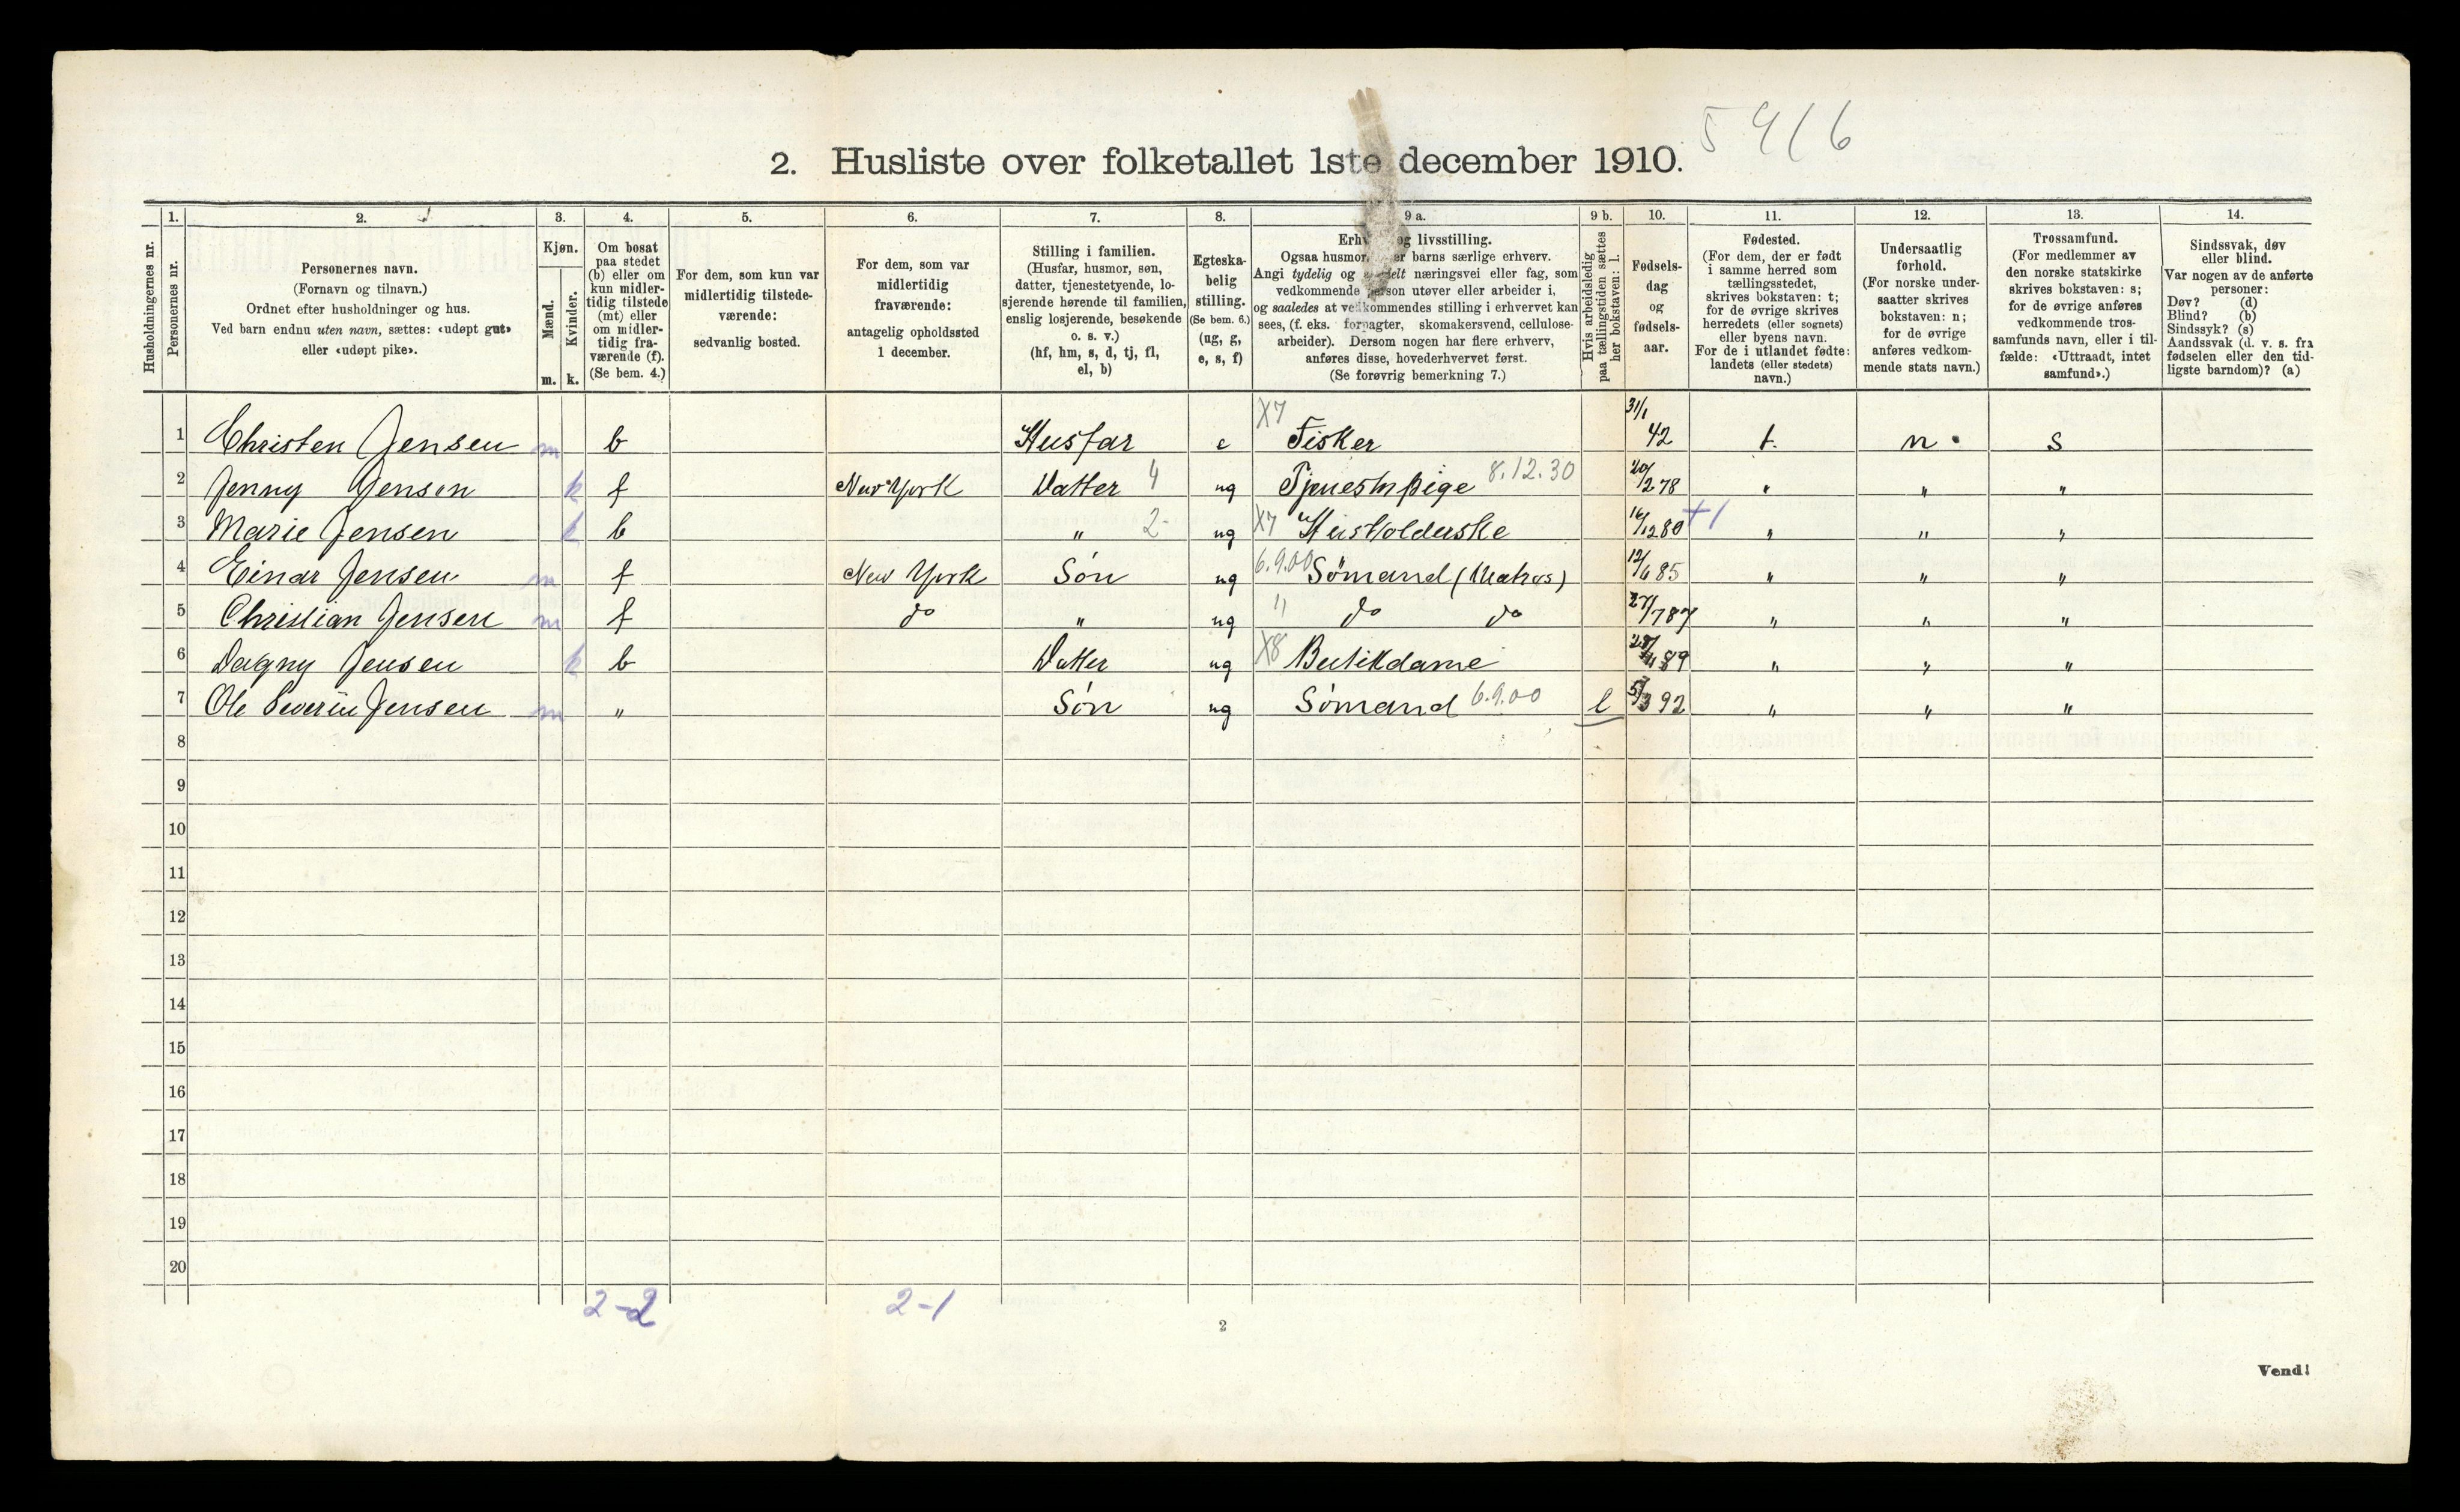 5916
2. Husliste over folketallet 1ste december 1910.
Husholdningernes nr.
1. Personernes nr.
2. Personernes navn. (Fornavn og tilnavn.) Ordnet efter husholdninger og hus. Ved barn endnu uten navn, sættes: «udøpt gut» eller «udøpt pike».
3. Kjøn. Mænd. m. Kvinder. k.
4. Om bosat paa stedet (b) eller om kun midlertidig tilstede (mt) eller om midlertidig fraværende (f). (Se bem. 4.)
5. For dem, som kun var midlertidig tilstedeværende: sedvanlig bosted.
6. For dem, som var midlertidig fraværende: antagelig opholdssted 1 december.
7. Stilling i familien. (Husfar, husmor, søn, datter, tjenestetyende, losjerende hørende til familien, enslig losjerende, besøkende o. s. v.) (hf, hm, s, d, tj, fl, el, b)
8. Egteskabelig stilling. (Se bem. 6.) (ug, g, e, s, f)
9 a. og livsstilling. Ogsaa barns særlige erhverv. Angi tydelig og næringsvei eller fag, som vedkommende person utøver eller arbeider i, og saaledes at vedkommendes stilling i erhvervet kan sees, (f. eks. forpagter, skomakersvend, cellulosearbeider). Dersom nogen har flere erhverv, anføres disse, hovederhvervet først. (Se forøvrig bemerkning 7.)
9 b. Hvis arbeidsledig paa tællingstiden sættes her bokstaven: l.
10. Fødselsdag og fødselsaar.
11. Fødested. (For dem, der er født i samme herred som tællingsstedet, skrives bokstaven: t; for de øvrige skrives herredets (eller sognets) eller byens navn. For de i utlandet fødte: landets (eller stedets) navn.)
12. Undersaatlig forhold. (For norske undersaatter skrives bokstaven: n; for de øvrige anføres vedkommende stats navn.)
13. Trossamfund. (For medlemmer av den norske statskirke skrives bokstaven: s; for de øvrige anføres vedkommende trossamfunds navn, eller i tilfælde: «Uttraadt, intet samfund».)
14. Sindssvak, døv eller blind. Var nogen av de anførte personer: Døv? (d) Blind? (b) Sindssyk? (s) Aandssvak (d. v. s. fra fødselen eller den tidligste barndom)? (a)
1 Christen Jensen m b Husfar e X7 Fisker 31/1 42 t. n. s
2 Jenny Jensen k f New York Datter 4 ug Tjenestepige 8.12.30 20/2 78 " " "
3 Marie Jensen k b " 2- ug X7 Husholderske 16/12 80 +1 " " "
4 Einar Jensen m f New York Søn ug 6.9.00 Sømand (Matros) 12/6 85 " " "
5 Christian Jensen m f do " ug " do do 27/7 87 " " "
6 Dagny Jensen k b Datter ug X8 Butikdame 89 " " "
7 Ole Severin Jensen m " Søn ug Sømand 6.9.00 l 5/3 92 " " "
8
9
10
11
12
13
14
15
16
17
18
19
20
2-2 2-1
2
Vend!